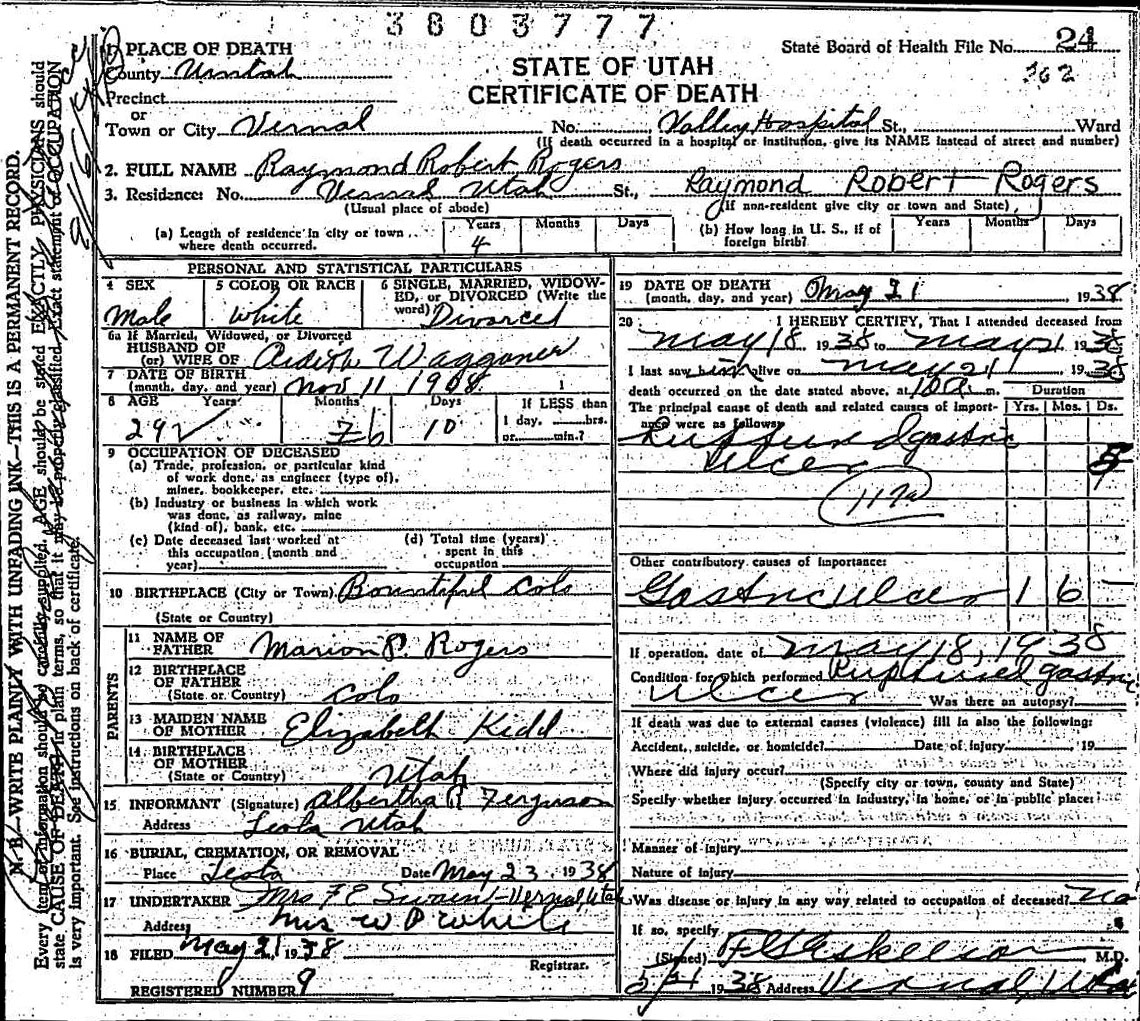 3803777
1 PLACE OF DEATH
County Uintah
Precinct
or
Town or City Vernal No. Valley Hospital St., Ward
(If death occurred in a hospital or institution, give its NAME instead of street and number)
State Board of Health File No. 24
362
STATE OF UTAH
CERTIFICATE OF DEATH
2. FULL NAME Raymond Robert Rogers
3. Residence: No. Vernal Utah St., Raymond Robert Rogers
(Usual place of abode) (If non-resident give city or town and State)
(a) Length of residence in city or town where death occurred. Years 4 Months Days
(b) How long in U. S., if of foreign birth? Years Months Days
PERSONAL AND STATISTICAL PARTICULARS
4 SEX Male
5 COLOR OR RACE White
6 SINGLE, MARRIED, WIDOWED, or DIVORCED (Write the word) Divorced
6a If Married, Widowed, or Divorced
HUSBAND OF
(or) WIFE OF Ardith Waggoner
7 DATE OF BIRTH
(month, day, and year) Nov 11 1908
8 AGE Years 29 Months 6 Days 10 If LESS than 1 day, hrs. or min.?
9 OCCUPATION OF DECEASED
(a) Trade, profession, or particular kind
of work done, as engineer (type of),
miner, bookkeeper, etc.
(b) Industry or business in which work
was done, as railway, mine
(kind of), bank, etc.
(c) Date deceased last worked at
this occupation (month and
year)
(d) Total time (years)
spent in this
occupation
10 BIRTHPLACE (City or Town) Bountiful Colo
(State or Country)
PARENTS
11 NAME OF
FATHER Marion P. Rogers
12 BIRTHPLACE
OF FATHER
(State or Country) Colo
13 MAIDEN NAME
OF MOTHER Elizabeth Kidd
14 BIRTHPLACE
OF MOTHER
(State or Country) Utah
15 INFORMANT (Signature) Albertha R Ferguson
Address Leota Utah
16 BURIAL, CREMATION, OR REMOVAL
Place Leota Date May 23 1938
17 UNDERTAKER Mrs F E Swain Vernal, Utah
Address Mrs W P White
18 FILED May 21 1938
Registrar.
REGISTERED NUMBER 9
19 DATE OF DEATH
(month, day, and year) May 21 1938
20 I HEREBY CERTIFY, That I attended deceased from
May 18 1938 to May 21 1938
I last saw him alive on May 21 1938
death occurred on the date stated above, at 10 a m. Duration
The principal cause of death and related causes of importance were as follows: Yrs. Mos. Ds.
Ruptured gastric
Ulcer
117a
Other contributory causes of importance:
Gastric ulcer 1 6
If operation, date of May 18, 1938
Condition for which performed Ruptured gastric
Ulcer Was there an autopsy?
If death was due to external causes (violence) fill in also the following:
Accident, suicide, or homicide? Date of injury , 19
Where did injury occur?
(Specify city or town, county and State)
Specify whether injury occurred in industry, in home, or in public place:
Manner of injury
Nature of injury
Was disease or injury in any way related to occupation of deceased? no
If so, specify
(Signed) M.D.
5/21 1938 Address Vernal, Utah
N. B.—WRITE PLAINLY WITH UNFADING INK—THIS IS A PERMANENT RECORD.
Every item of information should be carefully supplied. AGE should be stated EXACTLY. PHYSICIANS should
state CAUSE OF DEATH in plain terms, so that it may be properly classified. Exact statement of OCCUPATION
is very important. See instructions on back of certificate.